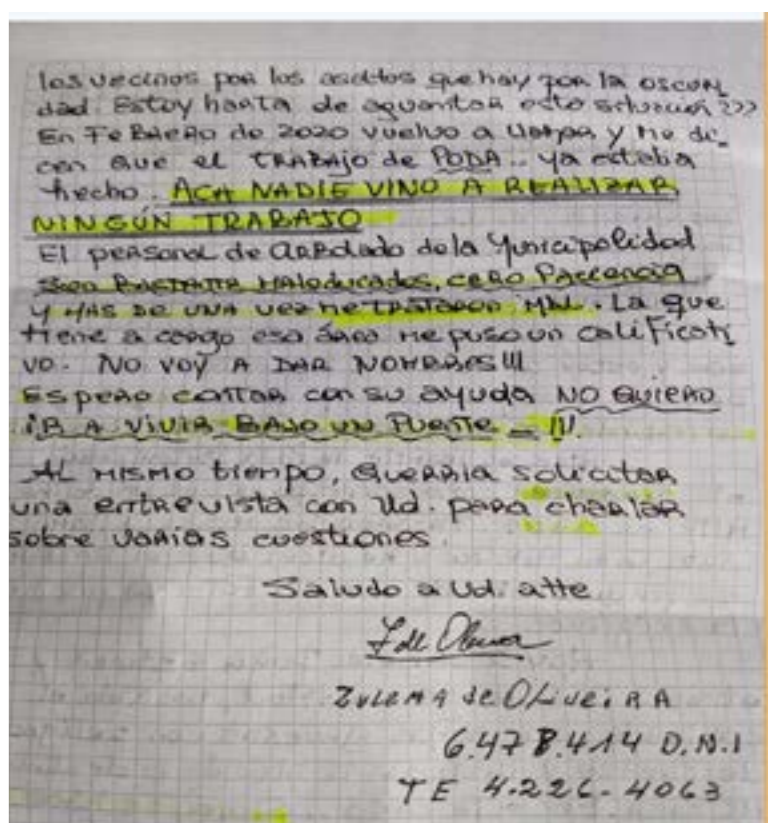 los vecinos por los asaltos que hay por la oscuri
dad. Estoy harta de aguantar esta situación ???
En FeBRERO de 2020 vuelvo a llamar y me di_
cen que el TRABAjo de PODA.. ya estaba
hecho. ACA NADIE VINO A REALIZAR
NINGÚN TRABAJO
El personal de ARBolado de la Municipalidad
Son BASTANTE MAleducados, CERO Paciencia
Y MAS DE UNA vez me trataron MAL. La que
tiene a cargo esa área me puso un calificati
vo. NO VOY A DAR NOMBRES!!!
Espero contar con su ayuda NO QUIERO
IR A VIVIR BAJO UN PUENTE _ !!!
AL MISMO tiempo, querria solicitar
una entrevista con Ud. para charlar
sobre varias cuestiones.
Saludo a Ud. atte
Z de Olivera
ZULEMA de OLiveiRA
6.478.414 D.N.I
TE 4.226-4063